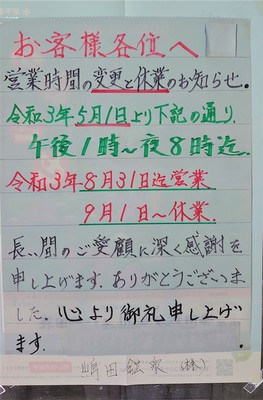 お客様各位へ
営業時間の変更と休業のお知らせ。
令和3年5月1日より下記の通り.
午後1時〜夜8時迄.
令和3年8月31日迄営業
9月1日〜休業.
長い間のご愛顧に深く感謝を
申し上げます.ありがとうございま
した.心より御礼申し上げ
ます.